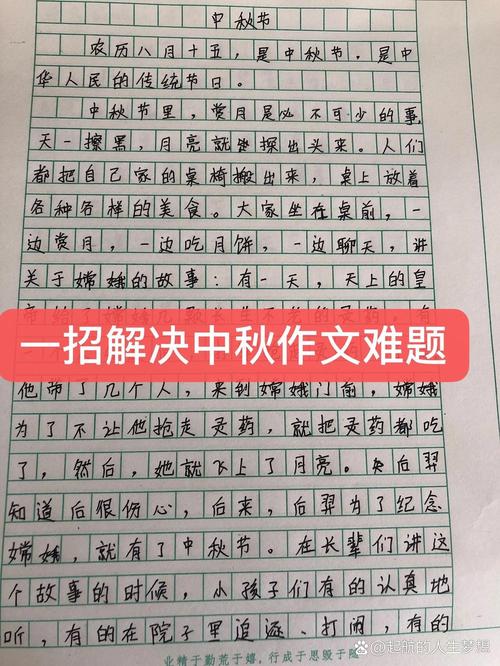 中秋节
农历八月十五，是中秋节。是中
华人民的传统节日。
中秋节里，赏月是必不可少的事，
天一擦黑，月亮就探出头来。人们
都把自己家的桌椅搬出来，桌上放着
各种各样的美食。大家坐在桌前，一
边赏月，一边吃月饼，一边聊天，讲
关于嫦娥的故事：有一天，天上的皇
帝给了嫦娥几颗长生不老的灵药，有
一招解决中秋作文难题
他带了几个人，来到嫦娥门前，嫦娥
为了不让他抢走灵药，就把灵药都吃
了，然后，她就飞上了月亮。后羿
知道后很伤心，后来，后羿为了纪念
嫦娥，就有了中秋节。在长辈们讲这
个故事的时候，小孩子们有的认真地
听，有的在院子里追逐、打闹，有的
业精于勤荒于嬉，行成于思毁于随
@起航的人生梦想